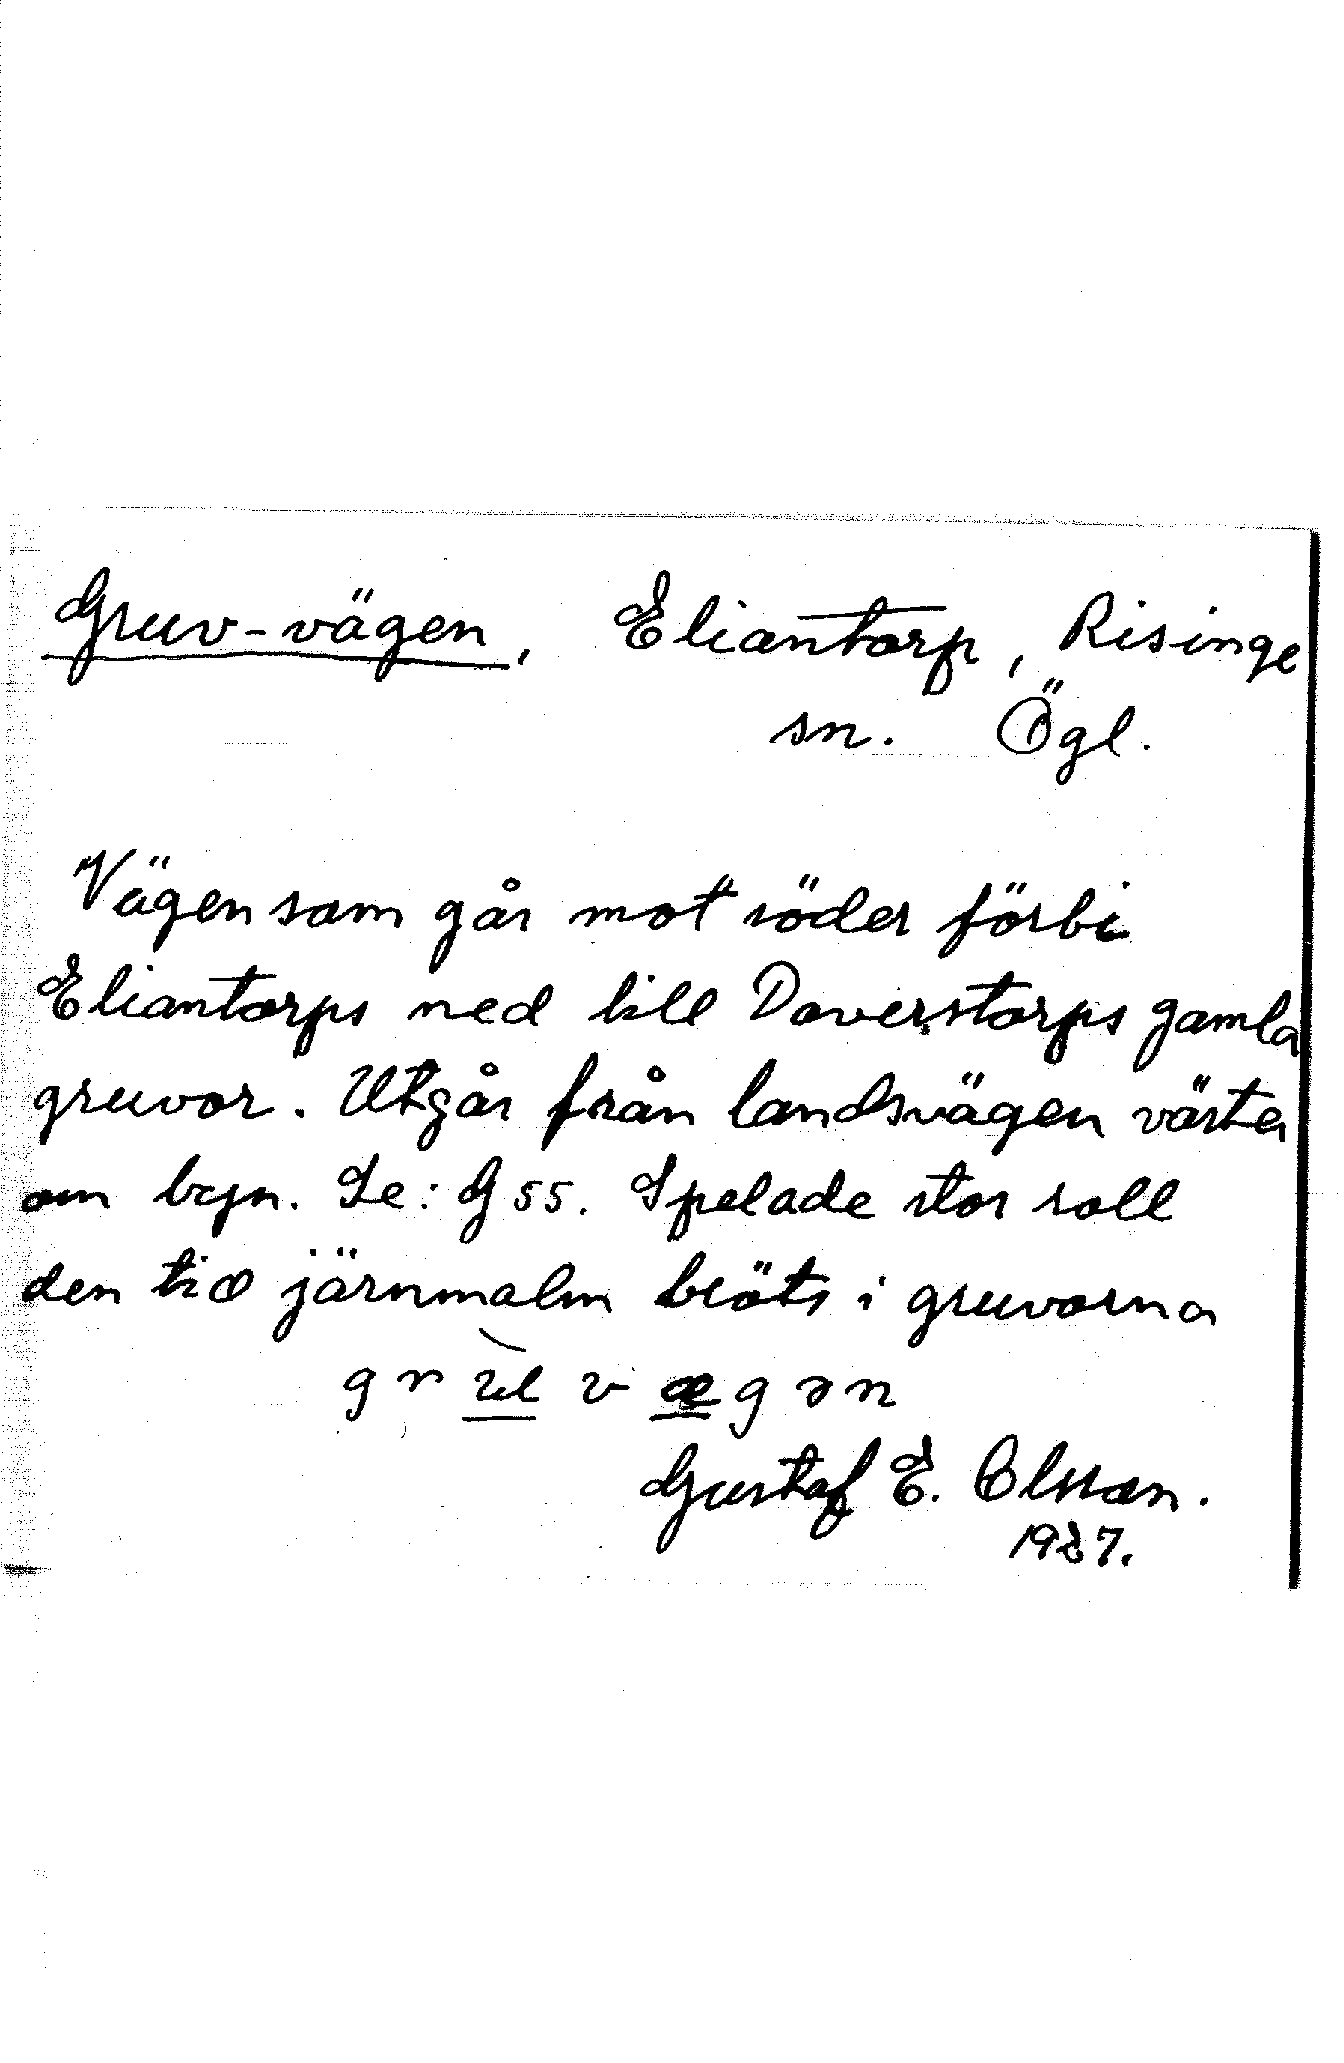 Gruv-vägen, Eliantorp, Risinge
sn. Ögl.
Vägen som går mot söder förbi
Eliantorps ned till Doverstorps gamla
gruvor. Utgår från landsvägen väster
om byn. Se: G 55. Spelade stor roll
den tid järnmalm bröts i gruvorna
g r v æ g ə n
Gustaf E. Olsson.
1937.